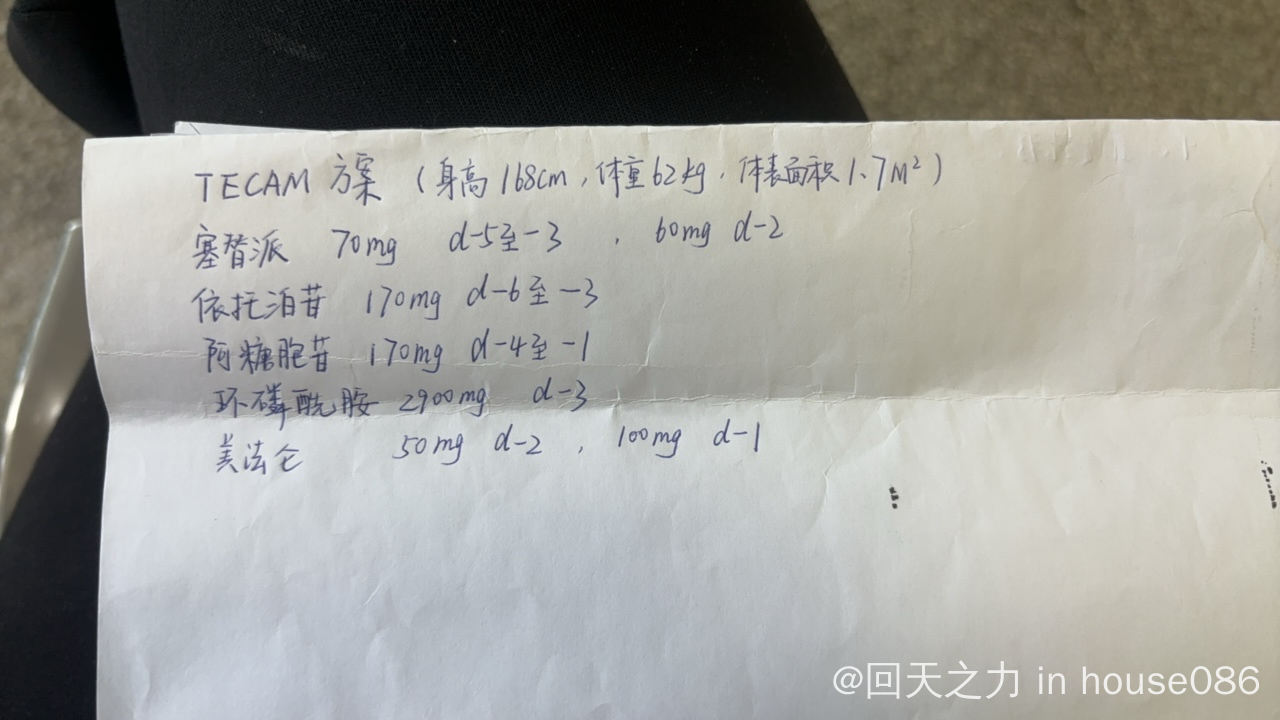 TECAM 方案 (身高168cm,体重62kg,体表面积1.7M²)
塞替派 70mg d-5至-3 , 60mg d-2
依托泊苷 170mg d-6至-3
阿糖胞苷 170mg d-4至-1
环磷酰胺 2900mg d-3
美法仑 50mg d-2 , 100mg d-1
@回天之力 in house086